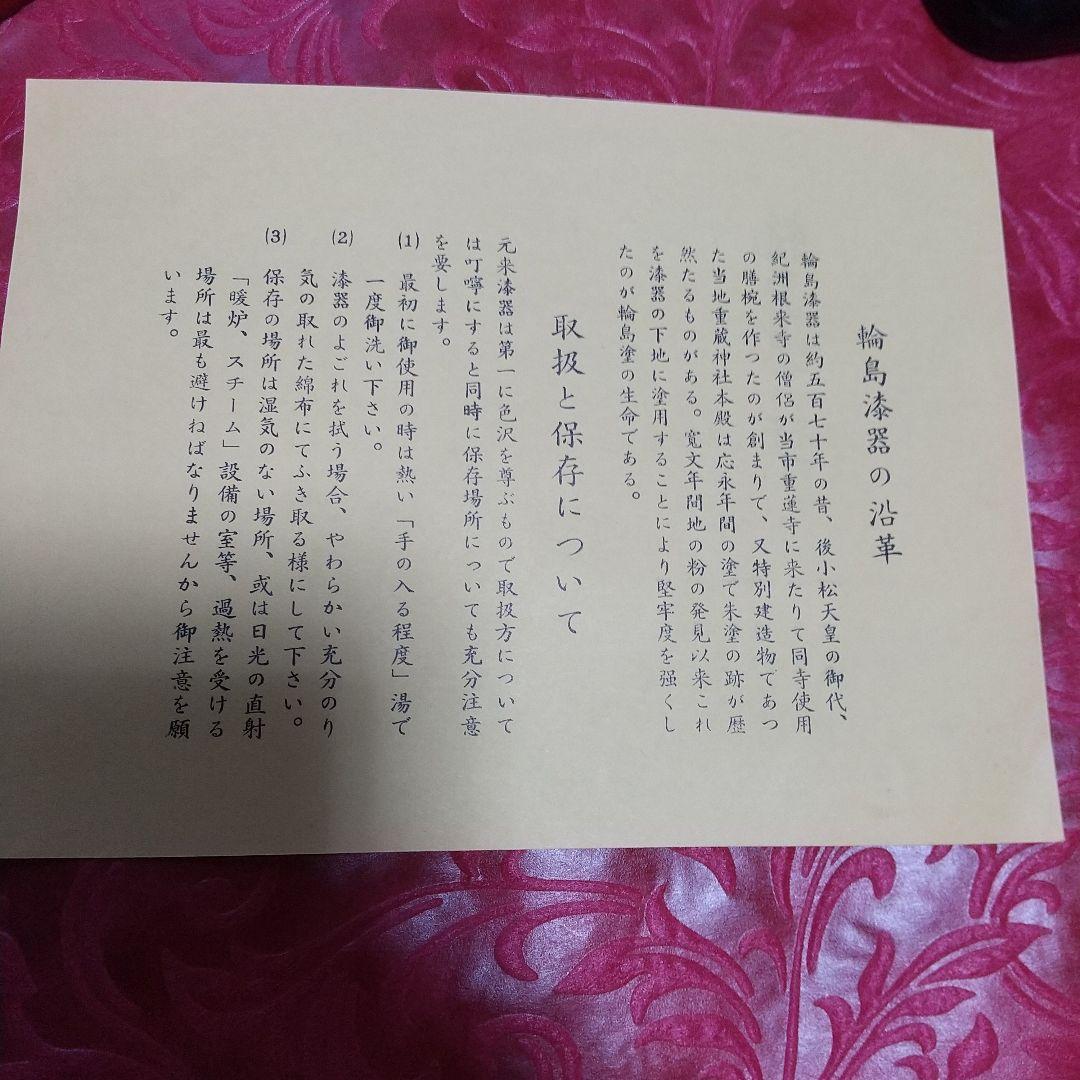 輪島漆器の沿革
輪島漆器は約五百七十年の昔、後小松天皇の御代、
紀洲根来寺の僧侶が当市重蓮寺に来たりて同寺使用
の膳椀を作つたのが創まりで、又特別建造物であつ
た当地重蔵神社本殿は応永年間の塗で朱塗の跡が歴
然たるものがある。寛文年間地の粉の発見以来これ
を漆器の下地に塗用することにより堅牢度を強くし
たのが輪島塗の生命である。
取扱と保存について
元来漆器は第一に色沢を尊ぶもので取扱方について
は叮嚀にすると同時に保存場所についても充分注意
を要します。
(1) 最初に御使用の時は熱い「手の入る程度」湯で
一度御洗い下さい。
(2) 漆器のよごれを拭う場合、やわらかい充分のり
気の取れた綿布にてふき取る様にして下さい。
(3) 保存の場所は湿気のない場所、或は日光の直射
「暖炉、スチーム」設備の室等、過熱を受ける
場所は最も避けねばなりませんから御注意を願
います。